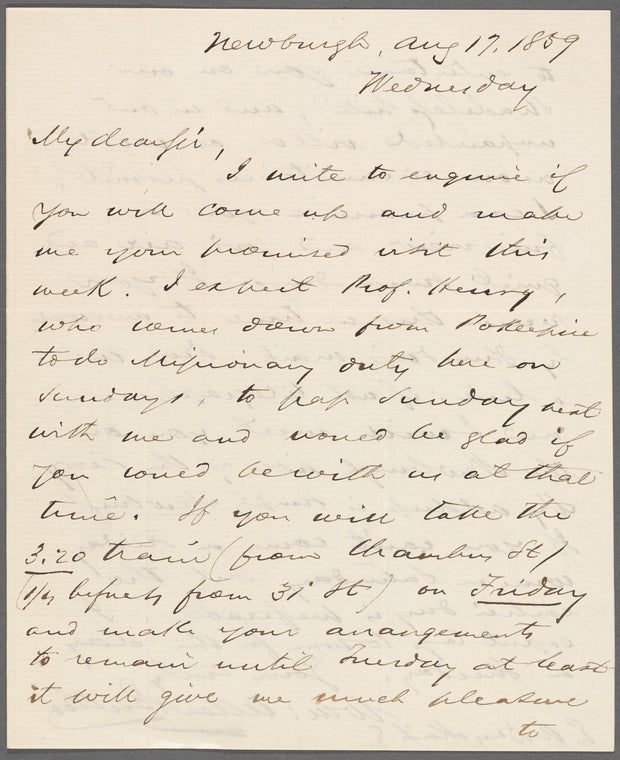 Newburgh, Aug 17, 1859
Wednesday
My dear Sir,
I write to enquire if
you will come up and make
me your promised visit this
week. I expect Prof. Henry,
who comes down from Pokeepsie
to do Missionary duty here on
Sundays, to pass Sunday next
with me and would be glad if
you could be with us at that
time. If you will take the
3.20 train (from Chambers St/
from 31st St) on Friday
and make your arrangements
to remain until Tuesday at least
it will give me much pleasure
to